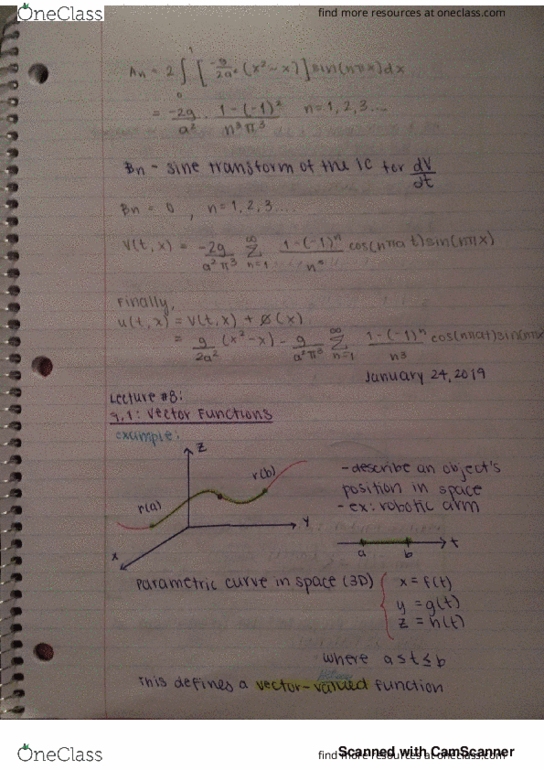 OneClass
find more resources at oneclass.com
An = 2 ∫₀¹ [ -g/2a² (x² - x) ] sin(nπx) dx
= -2g/a² · 1-(-1)²/n³π³ n = 1, 2, 3 ...
Bn - sine transform of the IC for dV/dt
Bn = 0 , n = 1, 2, 3 ...
V(t, x) = -2g/a²π³ ∞ Σ n=1 1-(-1)ⁿ/n³ cos(nπa t) sin(nπx)
Finally,
u(t, x) = V(t, x) + ø(x)
= g/2a² (x² - x) - g/a²π³ ∞ Σ n=1 1-(-1)ⁿ/n3 cos(nπat) sin(nπx
January 24, 2019
Lecture #8:
9.1: Vector Functions
example:
z
r(b)
r(a)
y
x
- describe an object's
position in space
- ex: robotic arm
a b t
Parametric curve in space (3D) { x = f(t)
y = g(t)
z = h(t)
where a ≤ t ≤ b
This defines a vector-valued function
OneClass
find more resources at oneclass.com
Scanned with CamScanner